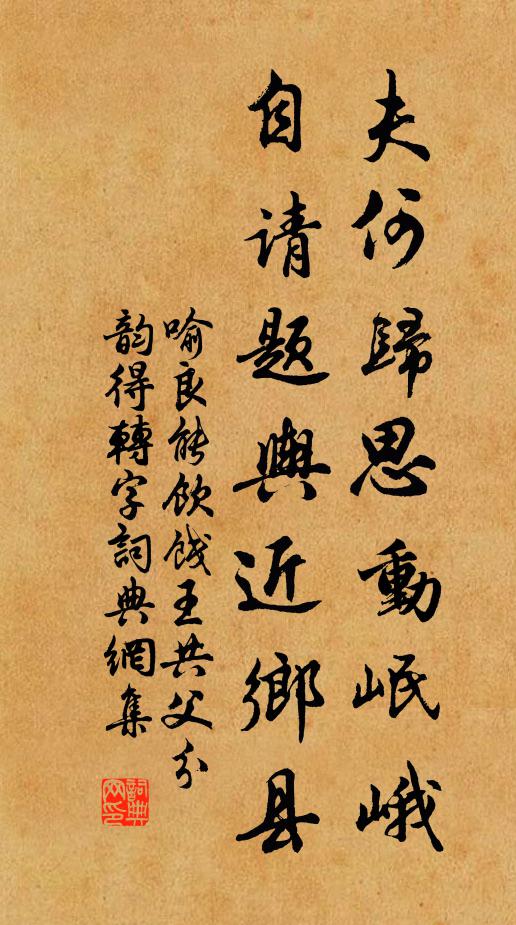 夫何歸思動岷峨
自请题輿近鄉县
喻良能飲餞王共父分
韵得轉字詞典網集
詞典網印